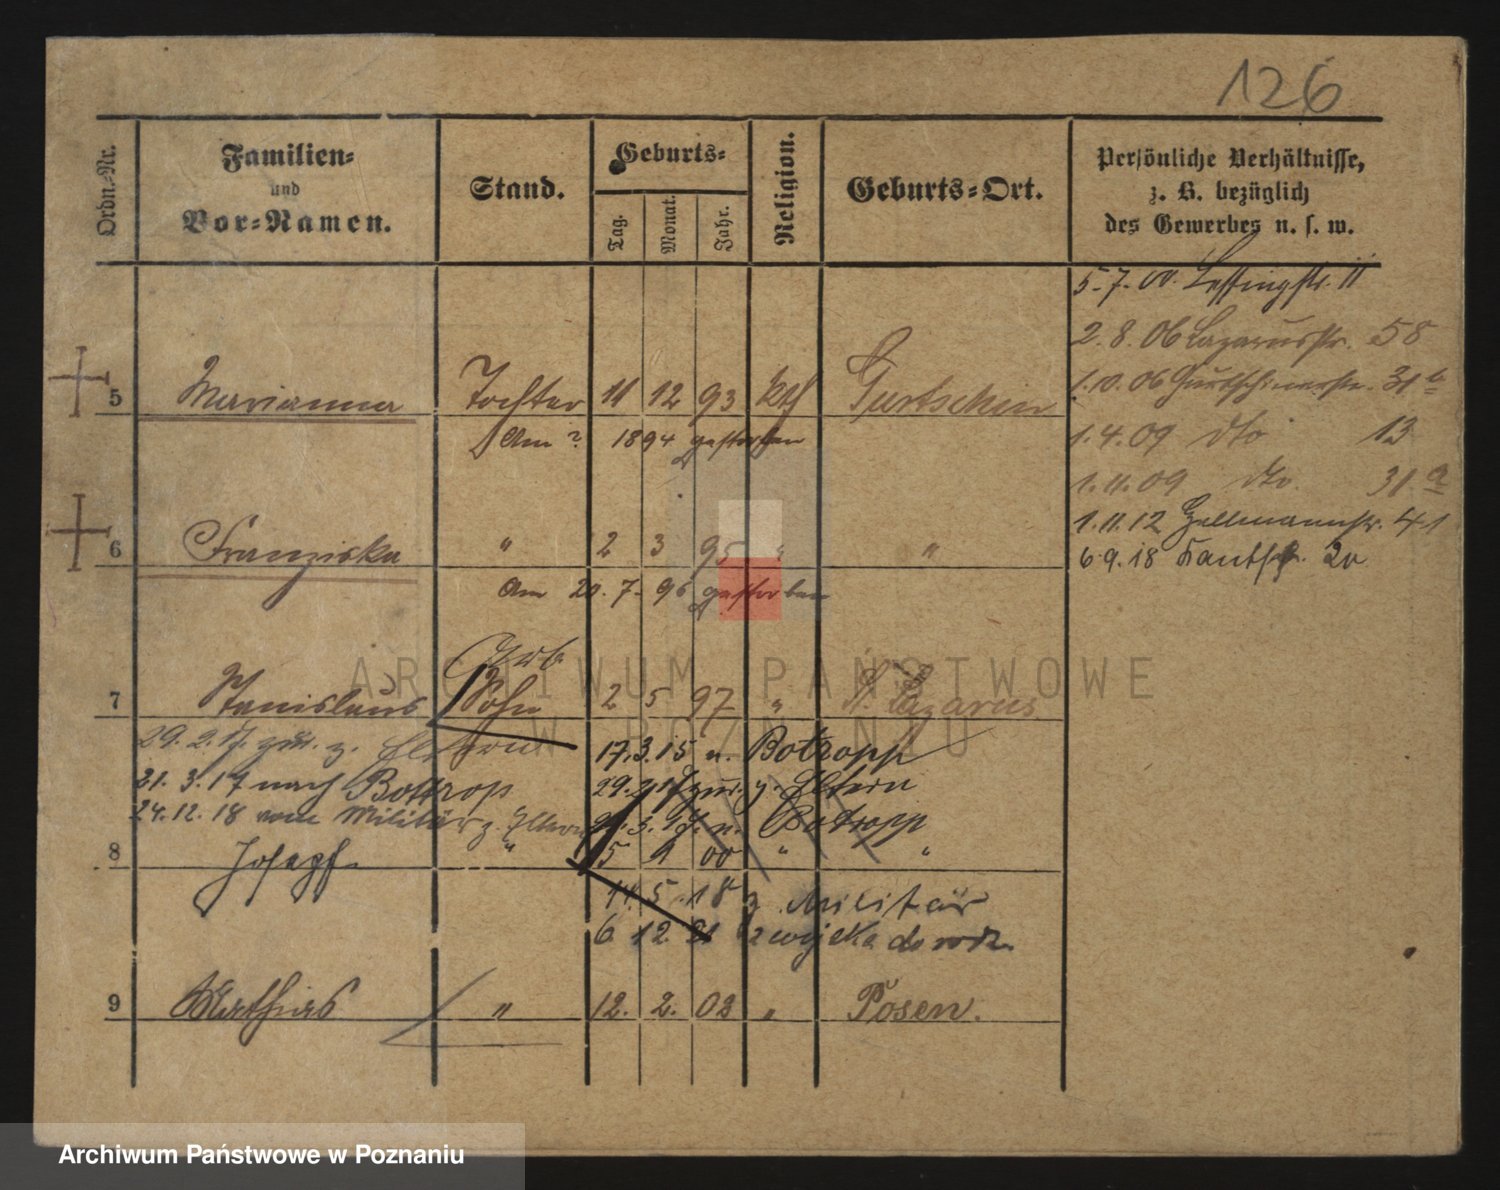 126
Ordn.-Nr.
Familien-
und
Vor-Namen.
Stand.
Geburts-
Tag.
Monat.
Jahr.
Religion.
Geburts-Ort.
Persönliche Verhältnisse,
z. B. bezüglich
des Gewerbes u. s. w.
5-7-00. Lessingstr. 11
2. 8. 06 Lazarusstr. 58
1.10.06 Gurtschinerstr. 31 b
1.4.09 dto 13
1.11.09 dto. 31 a
1.11.12 41
6.9.18 Kantstr. 20
5 Marianna Tochter 11 12 93 kth Gurtschin
Am ? 1894 gestorben
6 Franziska " 2 3 95 " "
Am 20. 7. 96 gestorben
Arb
7 Stanislaus Sohn 2 5 97 " St. Lazarus
29. 2. 17. zur. z. Eltern
17.3.15 n. Botropp
31. 3. 17 nach Bottrop
29.2.17 zur. z. Eltern
24.12.18 vom Militär z. Eltern
31.3.17. n. Botropp
8 Joseph " 5 1 00 " "
14.5.18 z. Militär
6 12. 21 z wojska do rodz.
9 Mathias " 12. 2. 03 " Posen.
ARCHIWUM PAŃSTWOWE
W POZNANIU
Archiwum Państwowe w Poznaniu